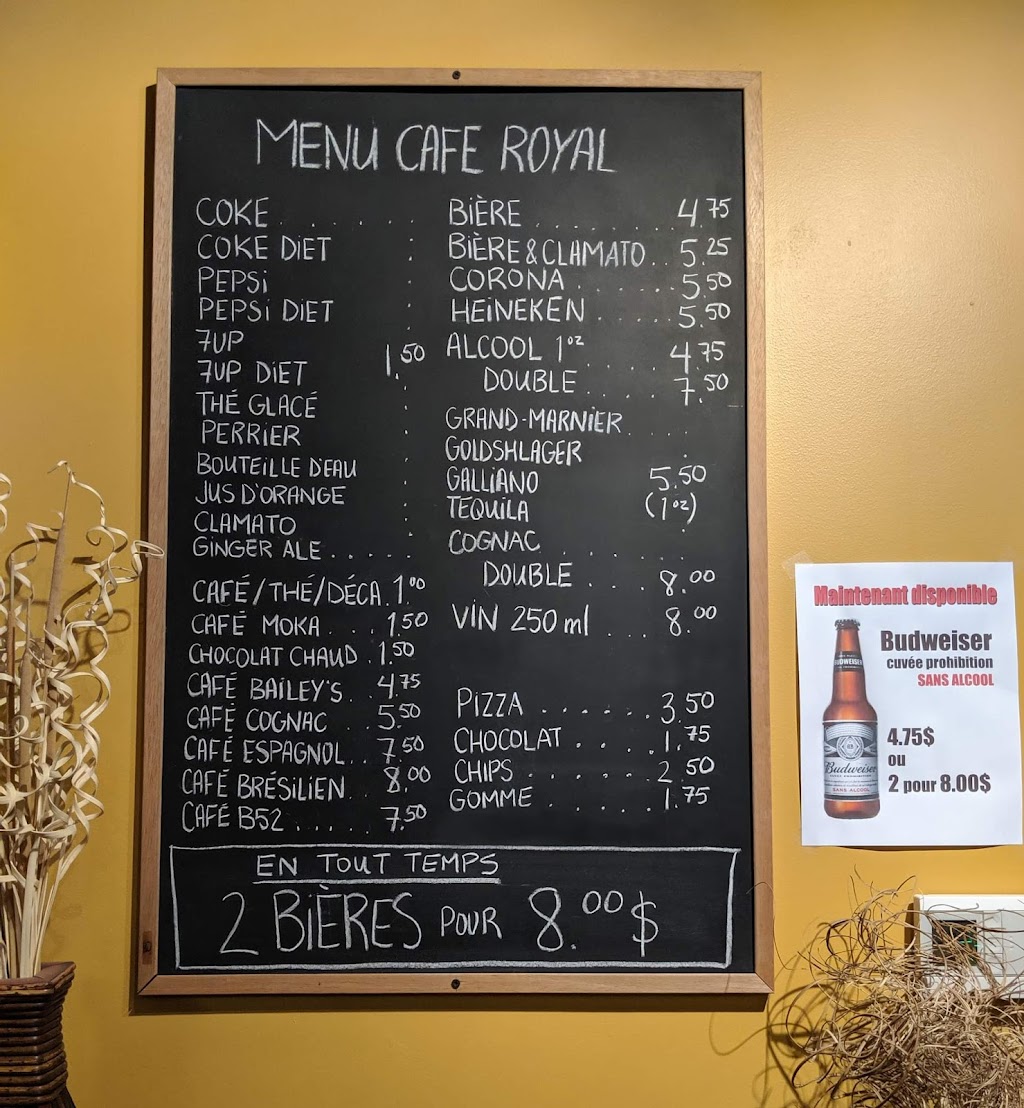 MENU CAFE ROYAL
COKE . . . . . .
COKE DIET
PEPSI
PEPSI DIET
7UP
1.50
7UP DIET
THÉ GLACÉ
PERRIER
BOUTEILLE D'EAU
JUS D'ORANGE
CLAMATO
GINGER ALE . . . . .
CAFÉ/THÉ/DÉCA. 1.00
CAFÉ MOKA . . . 1.50
CHOCOLAT CHAUD . 1.50
CAFÉ BAILEY'S . . 4.75
CAFÉ COGNAC . . 5.50
CAFÉ ESPAGNOL . . 7.50
CAFÉ BRÉSILIEN . . 8.00
CAFÉ B52 . . . . . 7.50
BIÈRE . . . . . . . 4.75
BIÈRE & CLAMATO . . 5.25
CORONA . . . . . . 5.50
HEINEKEN . . . . . 5.50
ALCOOL 1oz . . . . 4.75
DOUBLE . . . . 7.50
GRAND-MARNIER . . .
GOLDSHLAGER
GALLIANO 5.50
TEQUILA (1oz)
COGNAC . . . . . .
DOUBLE . . . 8.00
VIN 250 ml . . . 8.00
PIZZA . . . . . . 3.50
CHOCOLAT . . . . 1.75
CHIPS . . . . . . . 2.50
GOMME . . . . . . 1.75
EN TOUT TEMPS
2 BIÈRES POUR 8.00 $
Maintenant disponible
Budweiser
cuvée prohibition
SANS ALCOOL
4.75$
ou
2 pour 8.00$
BUDWEISER
Budweiser
SANS ALCOOL